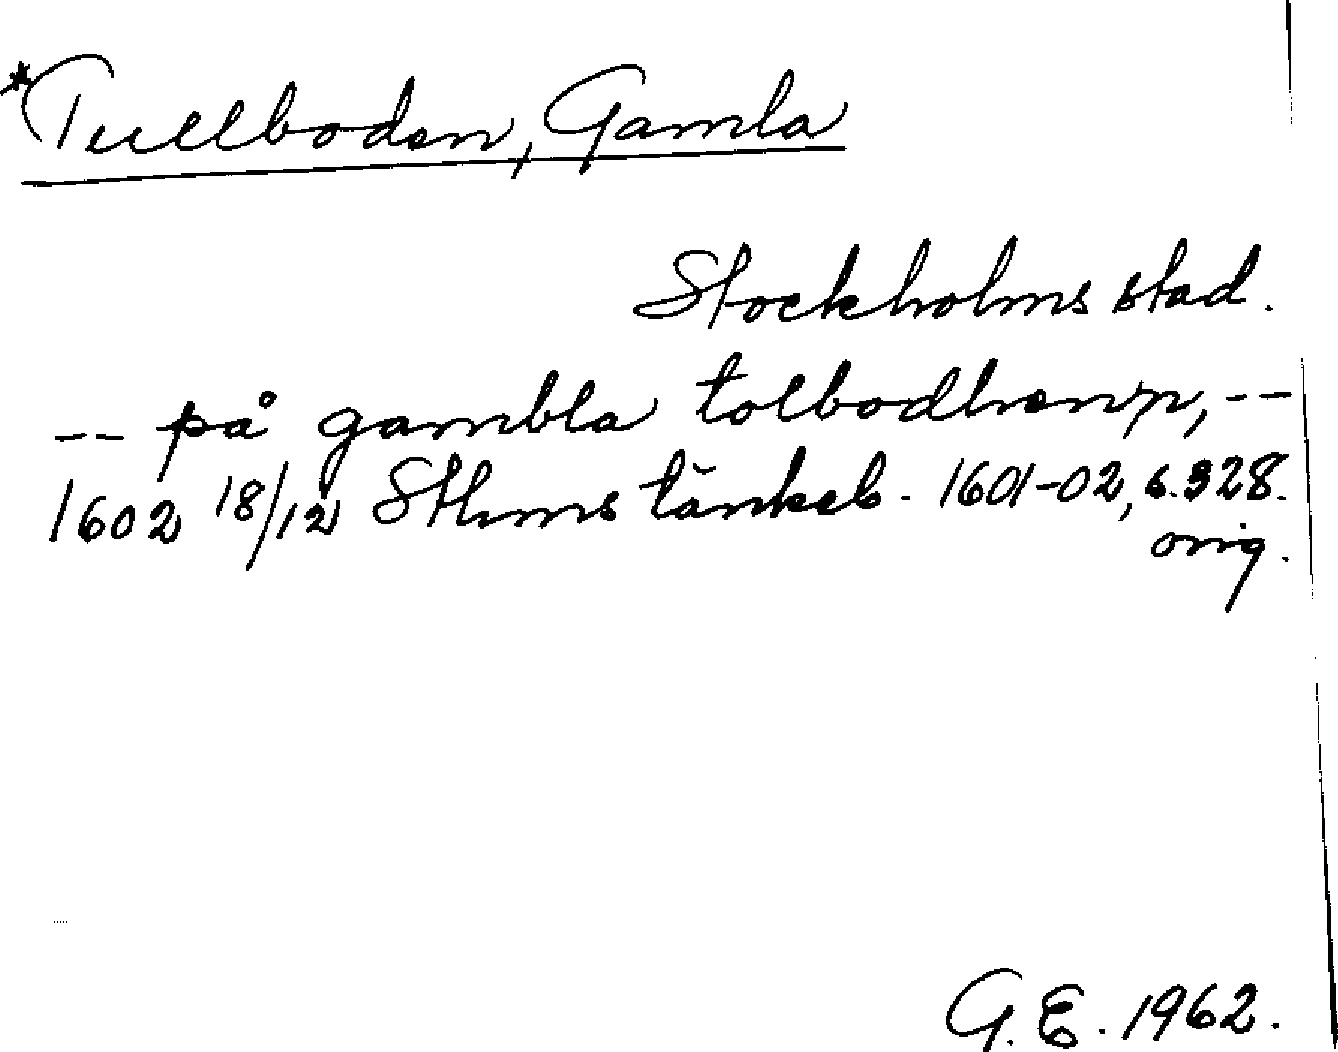 *Tullboden, Gamla
Stockholms stad.
-- på gambla tolbodhenn, --
1602 18/12 Sthms tänkeb. 1601-02, s. 328.
orig.
G. E. 1962.